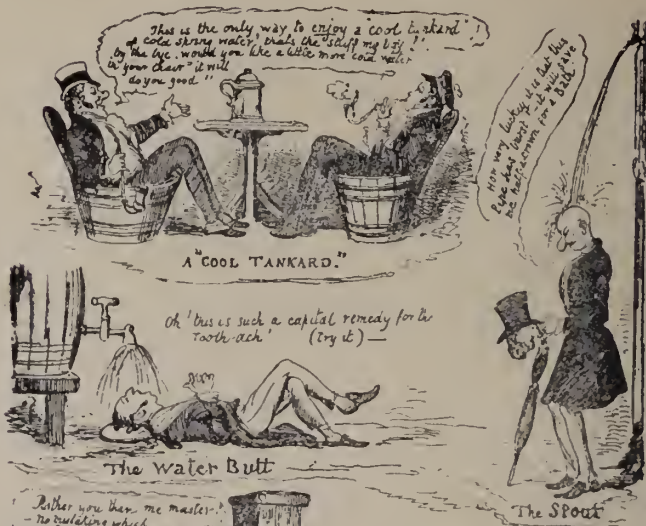 This is the only way to enjoy a "cool tankard"!
of cold spring water, that's the stuff my boy!
by the bye, would you like a little more cold water
in your chair? it will
do you good"
How very lucky it is that this
Pipe has burst it will save
me half-a-crown for a Bath
A "COOL TANKARD."
Oh! this is such a capital remedy for the
Tooth-ach! (Try it) —
The Water Butt
The Spout
Rather you than me master!
- no mistaking which